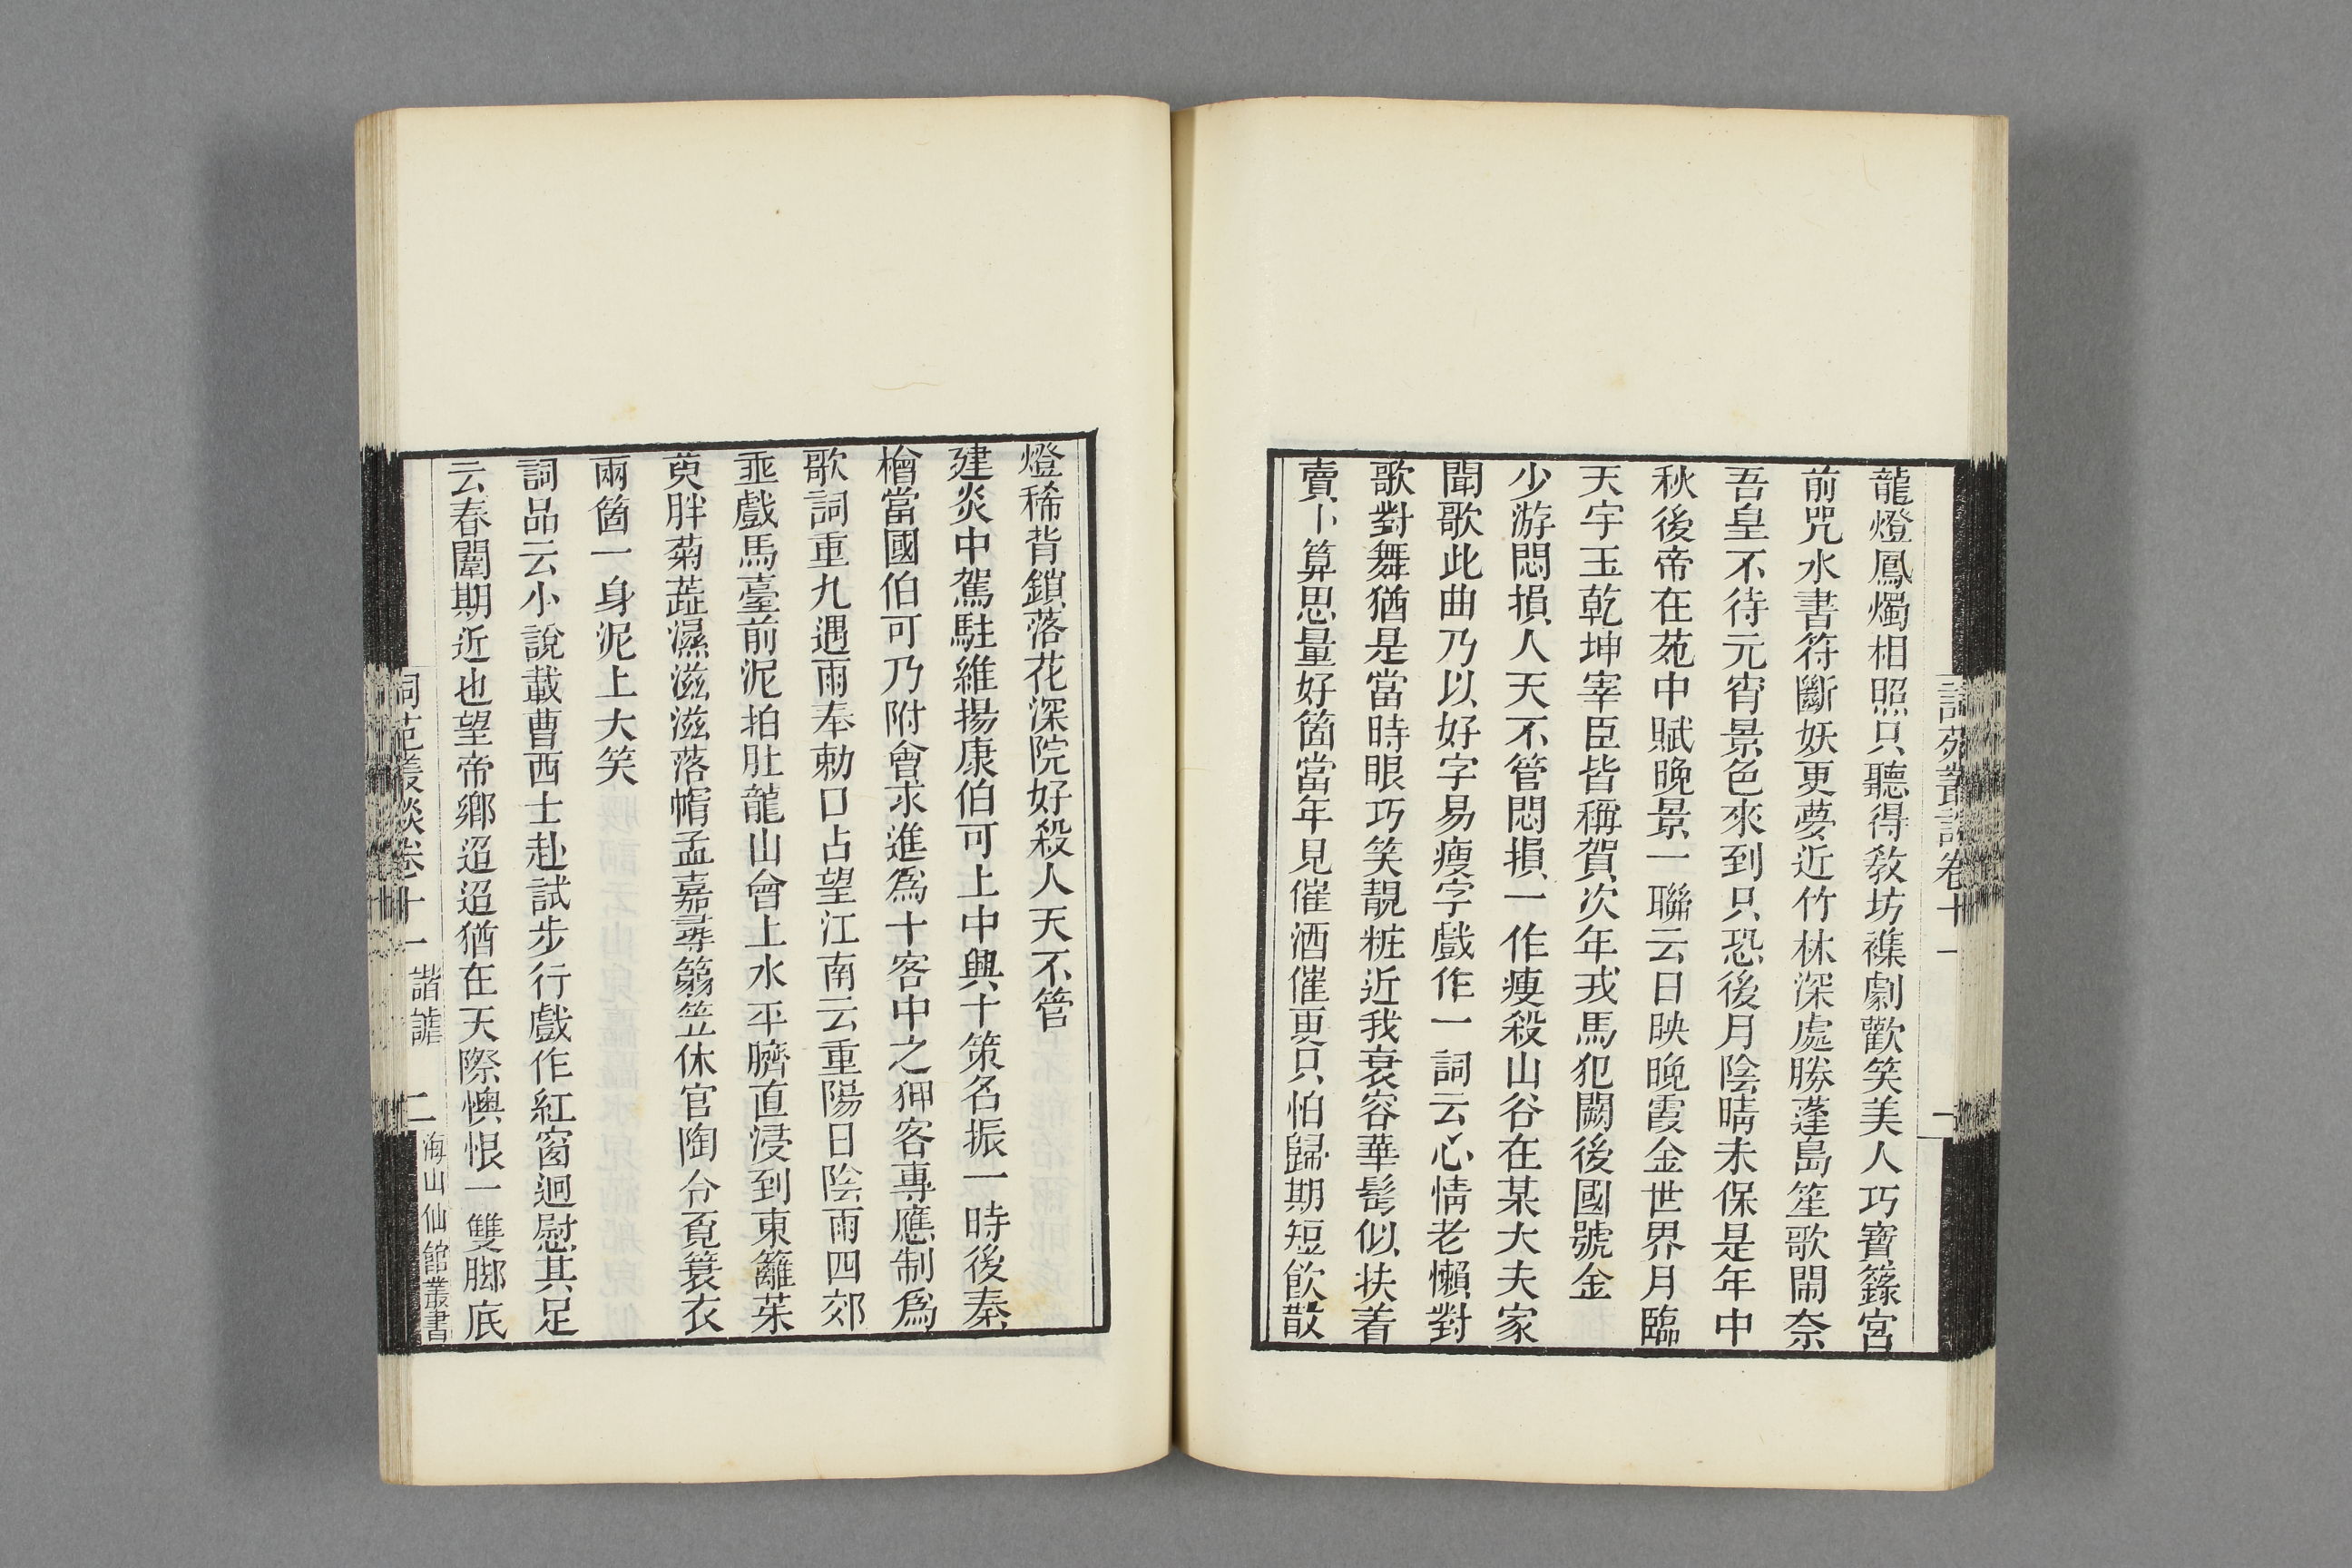 龍燈鳳燭相照只聽得敎坊襍劇歡笑美人巧寶籙宮
前咒水書符斷妖更夢近竹林深處勝蓬島笙歌鬧奈
吾皇不待元宵景色來到只恐後月陰晴未保是年中
秋後帝在苑中賦晚景一聯云日映晚霞金世界月臨
天宇玉乾坤宰臣皆稱賀次年戎馬犯闕後國號金
少游悶損人天不管悶損一作瘦殺山谷在某大夫家
聞歌此曲乃以好字易瘦字戲作一詞云心情老懶對
歌對舞猶是當時眼巧笑靚粧近我衰容華鬂似扶着
賣卜算思量好箇當年見催酒催更只怕歸期短飮散
燈稀背鎖落花深院好殺人天不管
建炎中駕駐維揚康伯可上中興十策名振一時後秦
檜當國伯可乃附會求進爲十客中之狎客專應制爲
歌詞重九遇雨奉勅口占望江南云重陽日陰雨四郊
垂戲馬臺前泥拍肚龍山會上水平臍直浸到東籬茱
萸胖菊蕋濕滋滋落帽孟嘉尋篛笠休官陶令覓簑衣
兩箇一身泥上大笑
詞品云小說載曹西士赴試步行戲作紅窗迥慰其足
云春闈期近也望帝鄉迢迢猶在天際懊恨一雙脚底
詞苑叢談卷十一 諧謔 二 海山仙館叢書